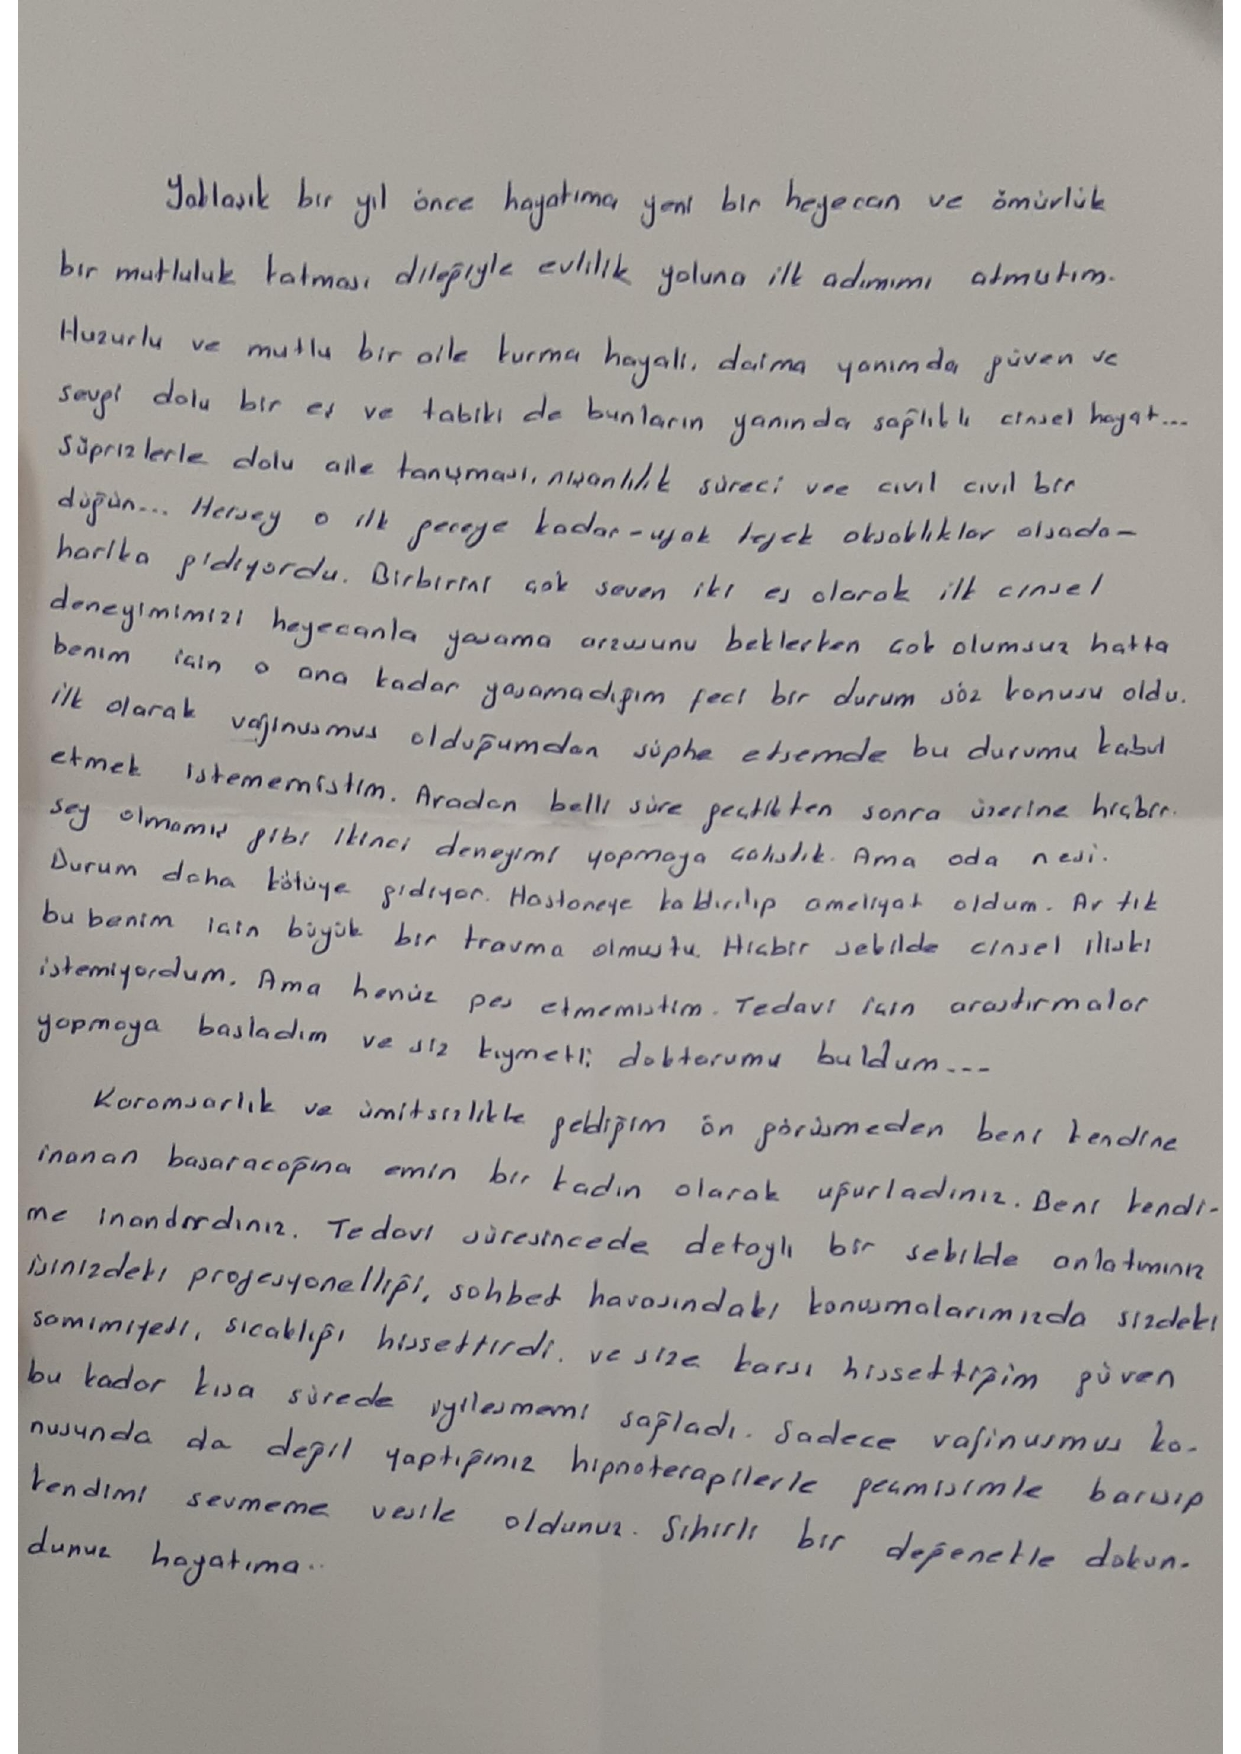 Yaklaşık bir yıl önce hayatıma yeni bir heyecan ve ömürlük
bir mutluluk katması dileğiyle evlilik yoluna ilk adımımı atmıştım.
Huzurlu ve mutlu bir aile kurma hayali, daima yanımda güven ve
sevgi dolu bir eş ve tabiki de bunların yanında sağlıklı cinsel hayat...
Süprizlerle dolu aile tanışması, nişanlılık süreci vee cıvıl cıvıl bir
düğün... Herşey o ilk geceye kadar-ufak tefek aksaklıklar olsada-
harika gidiyordu. Birbirini çok seven iki eş olarak ilk cinsel
deneyimimizi heyecanla yaşama arzusunu beklerken çok olumsuz hatta
benim için o ana kadar yaşamadığım feci bir durum söz konusu oldu.
İlk olarak vajinusmus olduğumdan şüphe etsemde bu durumu kabul
etmek istememiştim. Aradan belli süre geçtikten sonra üzerine hiçbir
şey olmamış gibi ikinci deneyimi yapmaya çalıştık. Ama oda nesi.
Durum daha kötüye gidiyor. Hastaneye kaldırılıp ameliyat oldum. Artık
bu benim için büyük bir travma olmuştu. Hiçbir şekilde cinsel ilişki
istemiyordum. Ama henüz pes etmemiştim. Tedavi için araştırmalar
yapmaya başladım ve siz kıymetli doktorumu buldum...
Karamsarlık ve ümitsizlikle geldiğim ön görüşmeden beni kendine
inanan başaracağına emin bir kadın olarak uğurladınız. Beni kendi-
me inandırdınız. Tedavi süresincede detaylı bir şekilde anlatımınız
işinizdeki profesyonelliği, sohbet havasındaki konuşmalarımızda sizdeki
samimiyeti, sıcaklığı hissettirdi. ve size karşı hissettiğim güven
bu kadar kısa sürede iyileşmemi sağladı. Sadece vajinusmus ko-
nusunda da değil yaptığınız hipnoterapilerle geçmişimle barışıp
kendimi sevmeme vesile oldunuz. Sihirli bir değenekle dokun-
dunuz hayatıma..